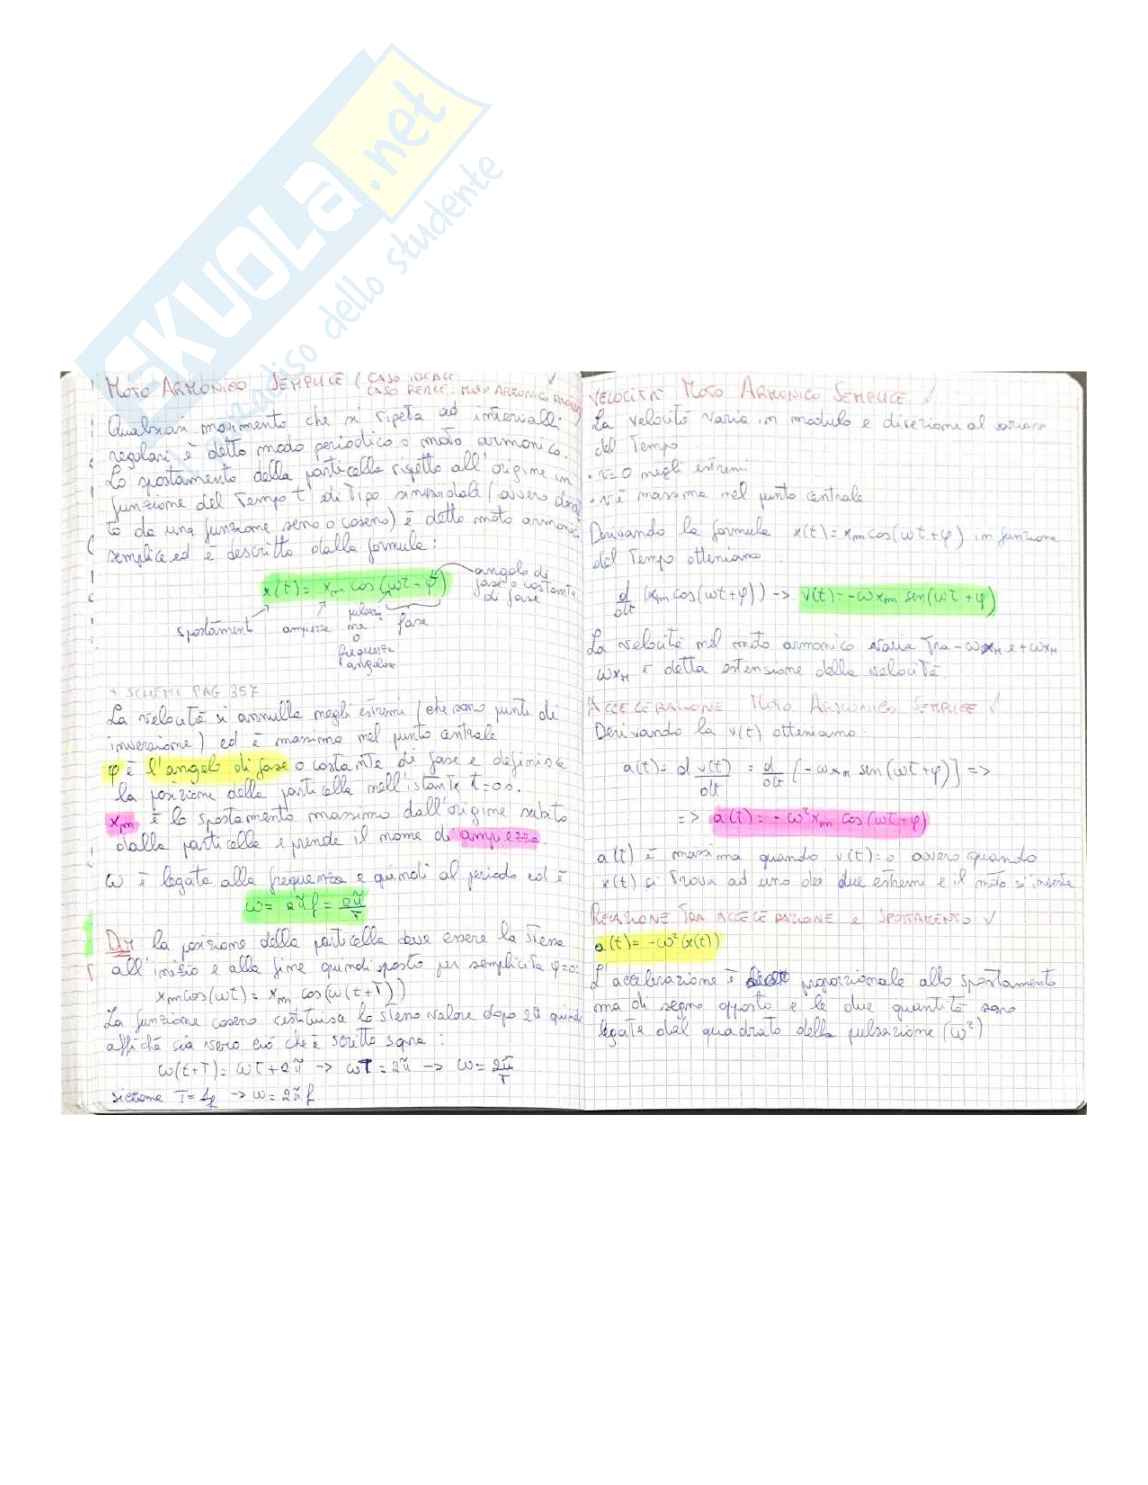 SKUOLA.net
paradiso dello studente
MOTO ARMONICO SEMPLICE ( CASO IDEALE
CASO REALE: MOTO ARMONICO
Qualsiasi movimento che si ripeta ad intervalli
regolari è detto modo periodico o moto armonico.
Lo spostamento della particella rispetto all'origine in
funzione del tempo t è di tipo sinusoidale (ovvero
to da una funzione seno o coseno) è detto moto armonico
semplice ed è descritto dalla formula:
x(t) = xm cos (ωt - φ)
angolo di
fase o costante
di fase
spostament
ampiezza
pulsaz
ne
o
frequenza
angolare
fase
+ SCHEMI PAG 357
La velocità si annulla negli estremi (che sono punti di
inversione) ed è massima nel punto centrale
φ è l'angolo di fase o costante di fase e definisce
la posizione della particella nell'istante t=0s.
xm è lo spostamento massimo dall'origine subito
dalla particella e prende il nome di ampiezza.
ω è legata alla frequenza e quindi al periodo ed è
ω = 2π f = 2π/T
Dim la posizione della particella deve essere la stessa
all'inizio e alla fine quindi posto per semplicità φ=0:
xm cos(ωt) = xm cos(ω(t+T))
La funzione coseno restituisce lo stesso valore dopo 2π quindi
affiché sia vero ciò che è scritto sopra:
ω(t+T) = ωt + 2π -> ωT = 2π -> ω = 2π/T
siccome T = 1/f -> ω = 2π f
VELOCITÀ MOTO ARMONICO SEMPLICE ✓
La velocità varia in modulo e direzione al variare
del tempo
• v=0 negli estremi
• v è massima nel punto centrale
Derivando la formula x(t) = xm cos(ωt+φ) in funzione
del tempo otteniamo
d/dt (xm cos(ωt+φ)) -> v(t) = -ω xm sen(ωt + φ)
La velocità nel moto armonico varia tra -ωxM e +ωxM
ωxM è detta estensione della velocità
ACCELERAZIONE MOTO ARMONICO SEMPLICE ✓
Derivando la v(t) otteniamo:
a(t) = d v(t)/dt = d/dt [-ω xm sen(ωt+φ)] =>
=> a(t) = -ω² xm cos(ωt+φ)
a(t) è massima quando v(t)=0 ovvero quando
x(t) si trova ad uno dei due estremi e il moto si inverte
RELAZIONE TRA ACCELERAZIONE e SPOSTAMENTO ✓
a(t) = -ω²(x(t))
L'accelerazione è proporzionale allo spostamento
ma di segno opposto e le due quantità sono
legate dal quadrato della pulsazione (ω²)